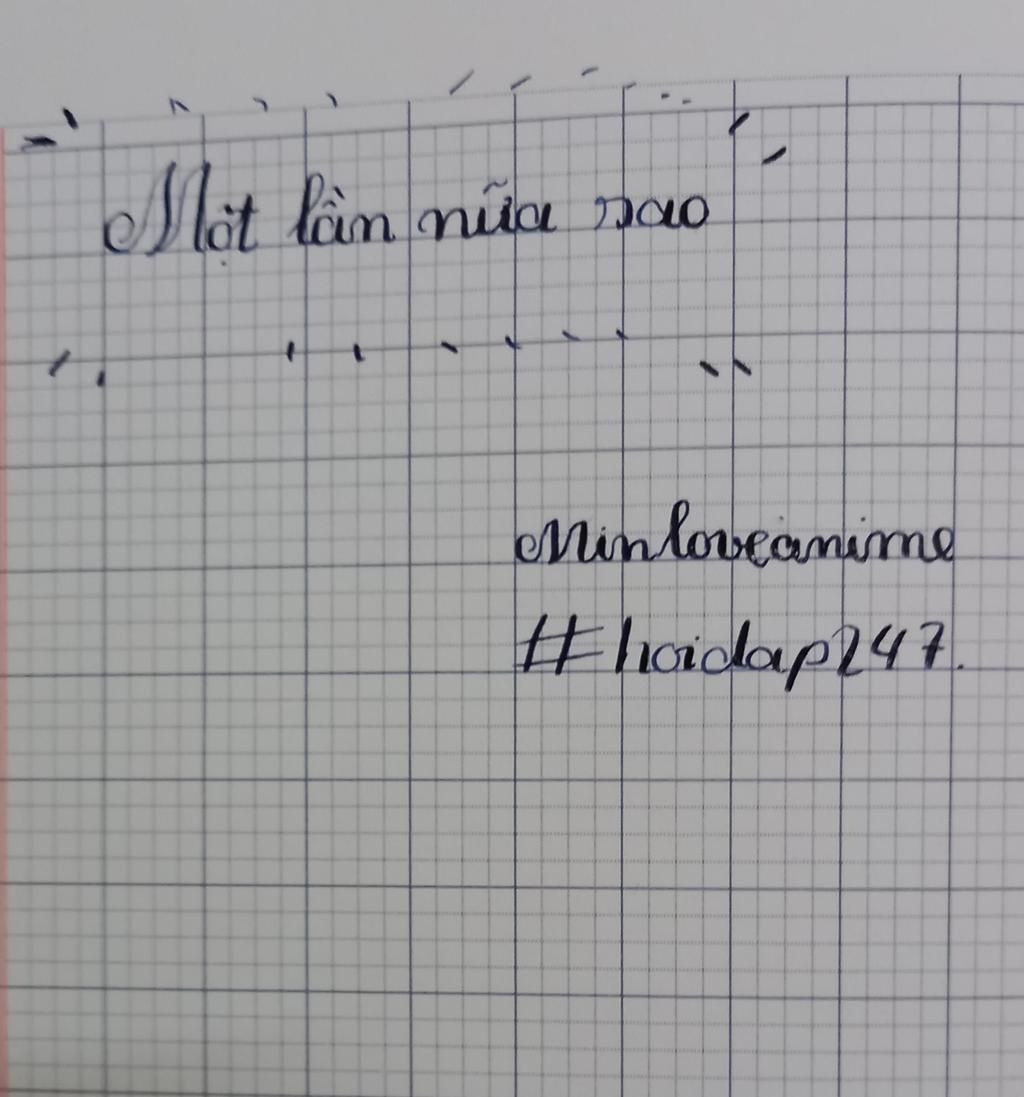 Một lần nữa nao
Minloveanime
#hoidap247.